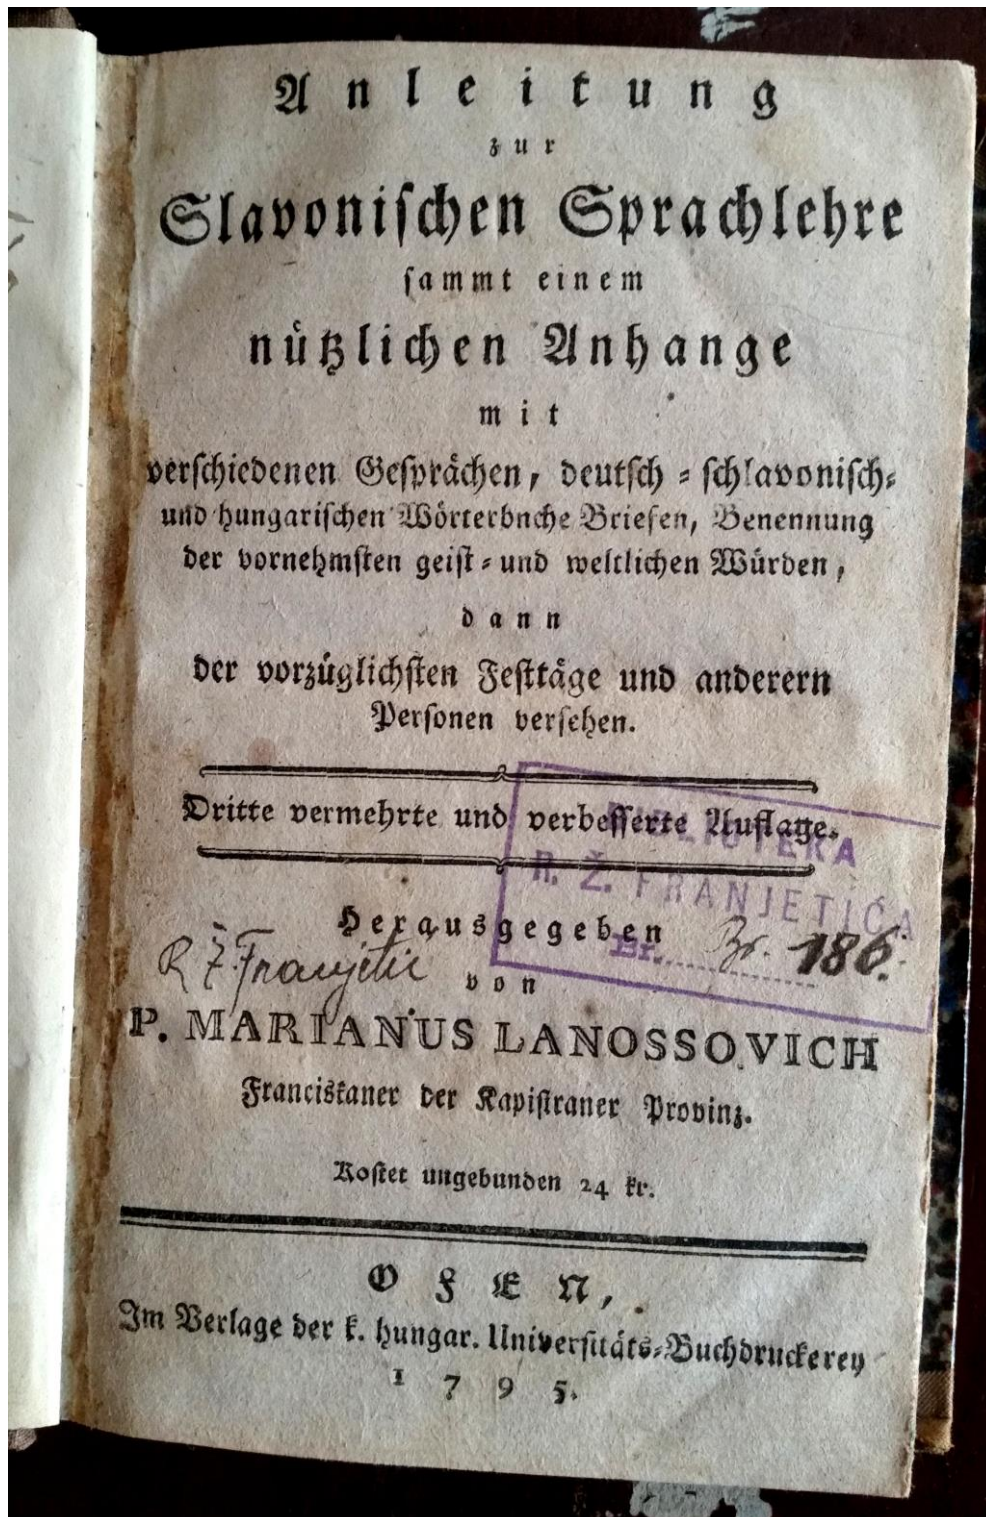 Anleitung
zur
Slavoniſchen Sprachlehre
ſammt einem
nützlichen Anhange
mit
verſchiedenen Geſprächen, deutſch = ſchlavoniſch=
und hungariſchen Wörterbnche Briefen, Benennung
der vornehmſten geiſt = und weltlichen Würden,
dann
der vorzüglichſten Feſttäge und anderern
Perſonen verſehen.
Dritte vermehrte und verbeſſerte Auflage.
BIBLIOTEKA
R. Ž. FRANJETIĆA
Herausgegeben
Br. Br. 186.
R Ž. Franjetić
von
P. MARIANUS LANOSSOVICH
Franciskaner der Kapiſtraner Provinz.
Koſtet ungebunden 24 kr.
OFEN,
Im Verlage der k. hungar. Univerſitäts=Buchdruckerey
1795.